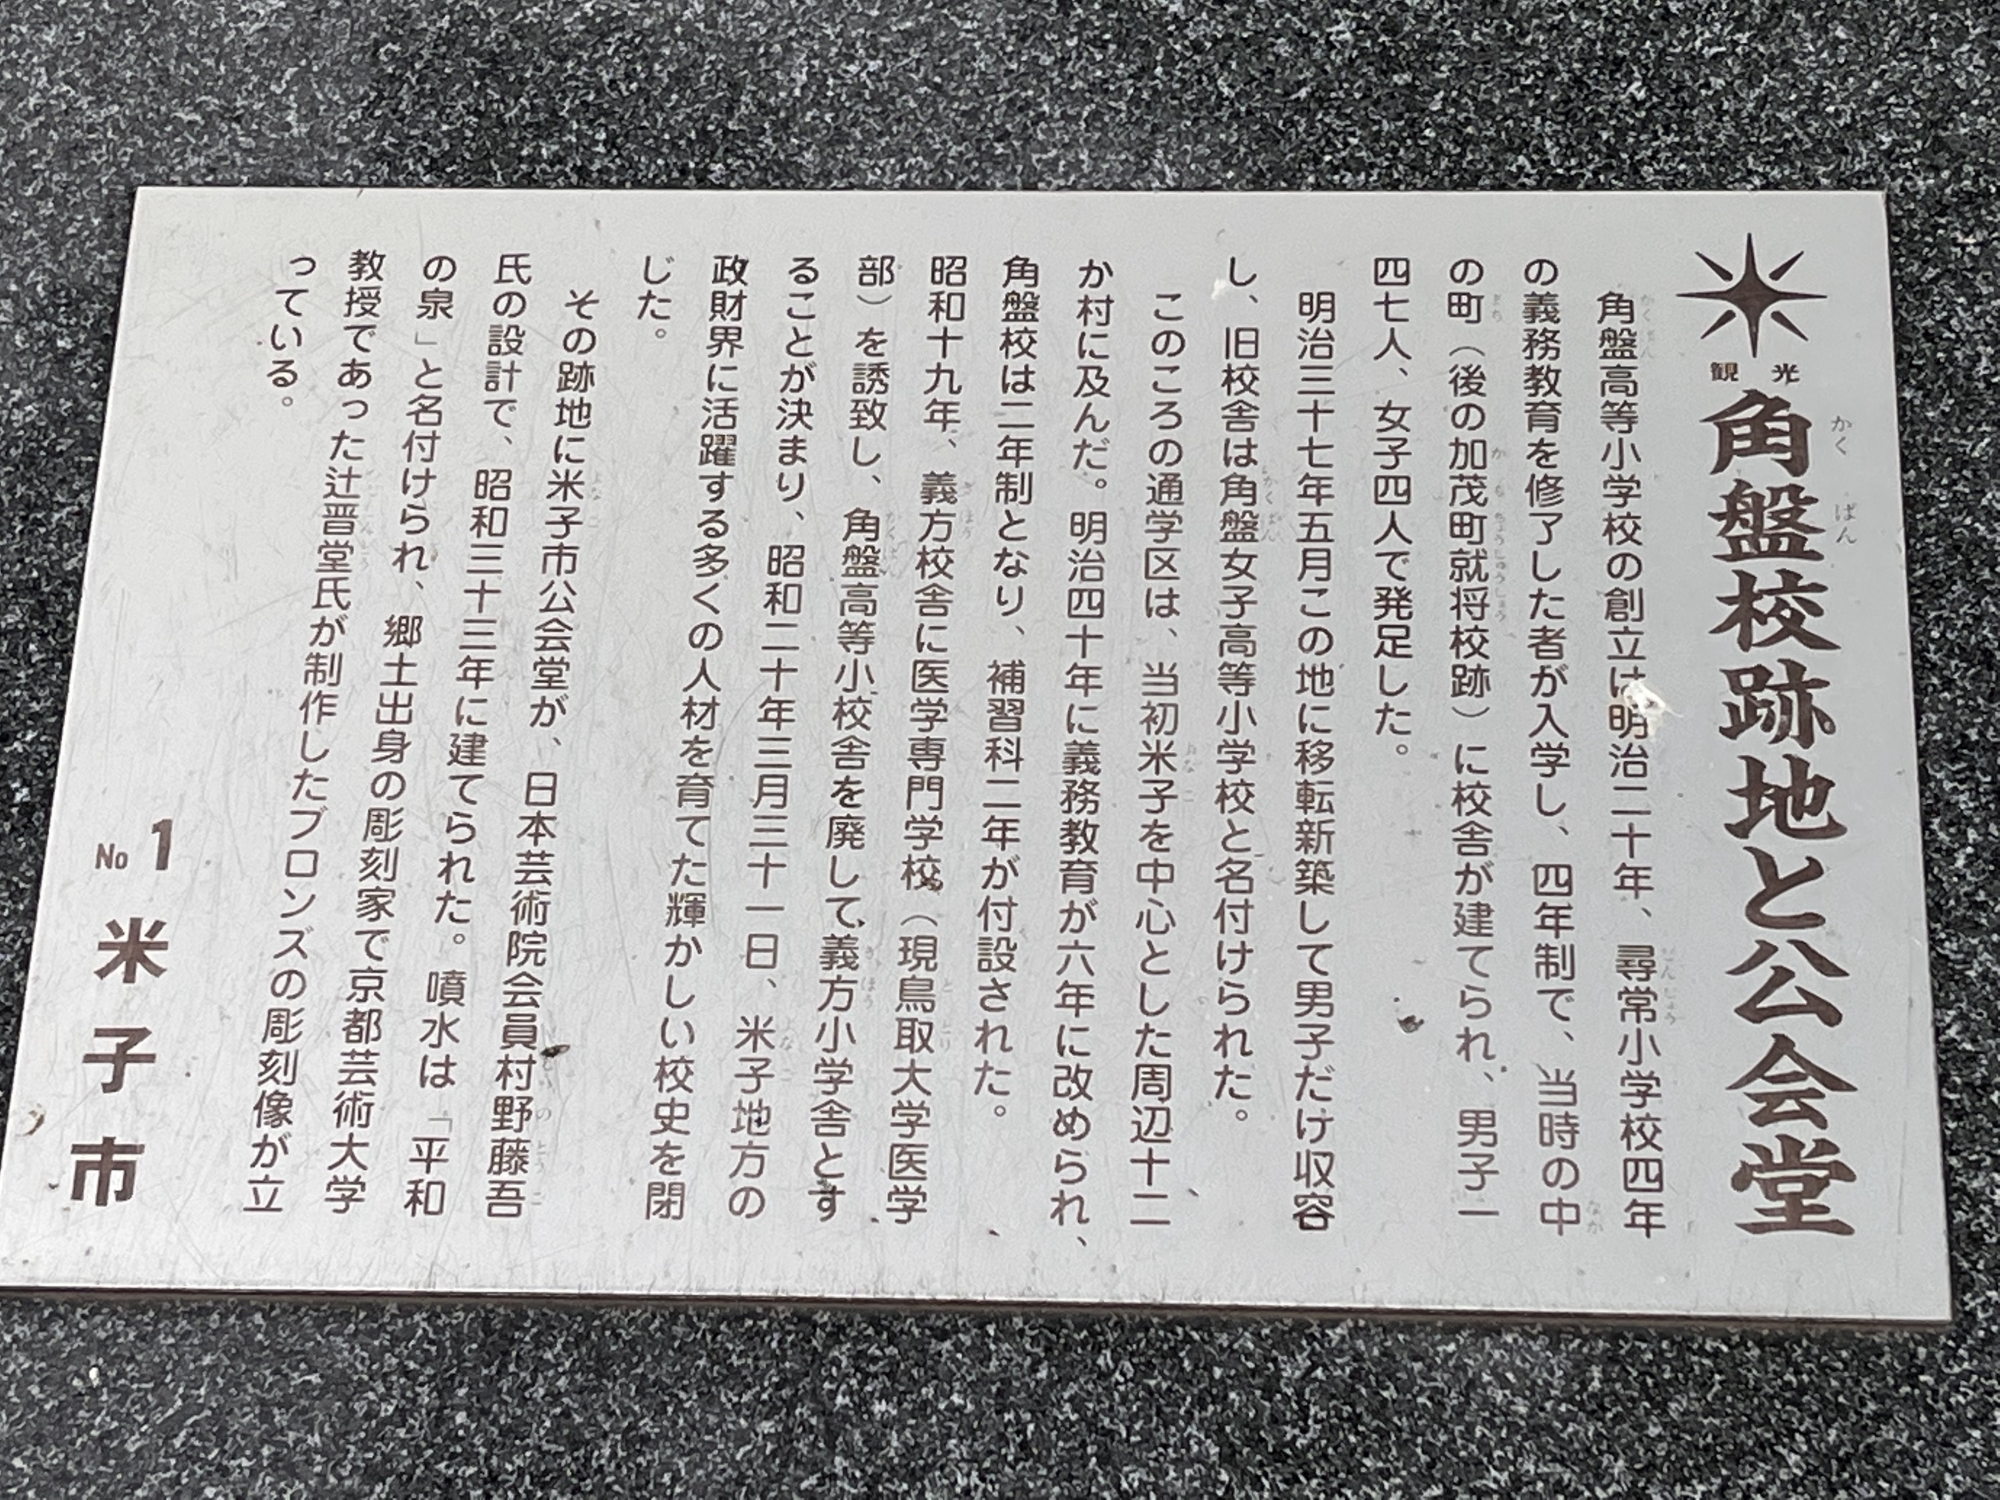 観光
角盤校跡地と公会堂
角盤高等小学校の創立は明治二十年、尋常小学校四年
の義務教育を修了した者が入学し、四年制で、当時の中
の町（後の加茂町就将校跡）に校舎が建てられ、男子一
四七人、女子四人で発足した。
明治三十七年五月この地に移転新築して男子だけ収容
し、旧校舎は角盤女子高等小学校と名付けられた。
このころの通学区は、当初米子を中心とした周辺十二
か村に及んだ。明治四十年に義務教育が六年に改められ、
角盤校は二年制となり、補習科二年が付設された。
昭和十九年、義方校舎に医学専門学校（現鳥取大学医学
部）を誘致し、角盤高等小校舎を廃して義方小学舎とす
ることが決まり、昭和二十年三月三十一日、米子地方の
政財界に活躍する多くの人材を育てた輝かしい校史を閉
じた。
その跡地に米子市公会堂が、日本芸術院会員村野藤吾
氏の設計で、昭和三十三年に建てられた。噴水は「平和
の泉」と名付けられ、郷土出身の彫刻家で京都芸術大学
教授であった辻晋堂氏が制作したブロンズの彫刻像が立
っている。
No 1 米子市